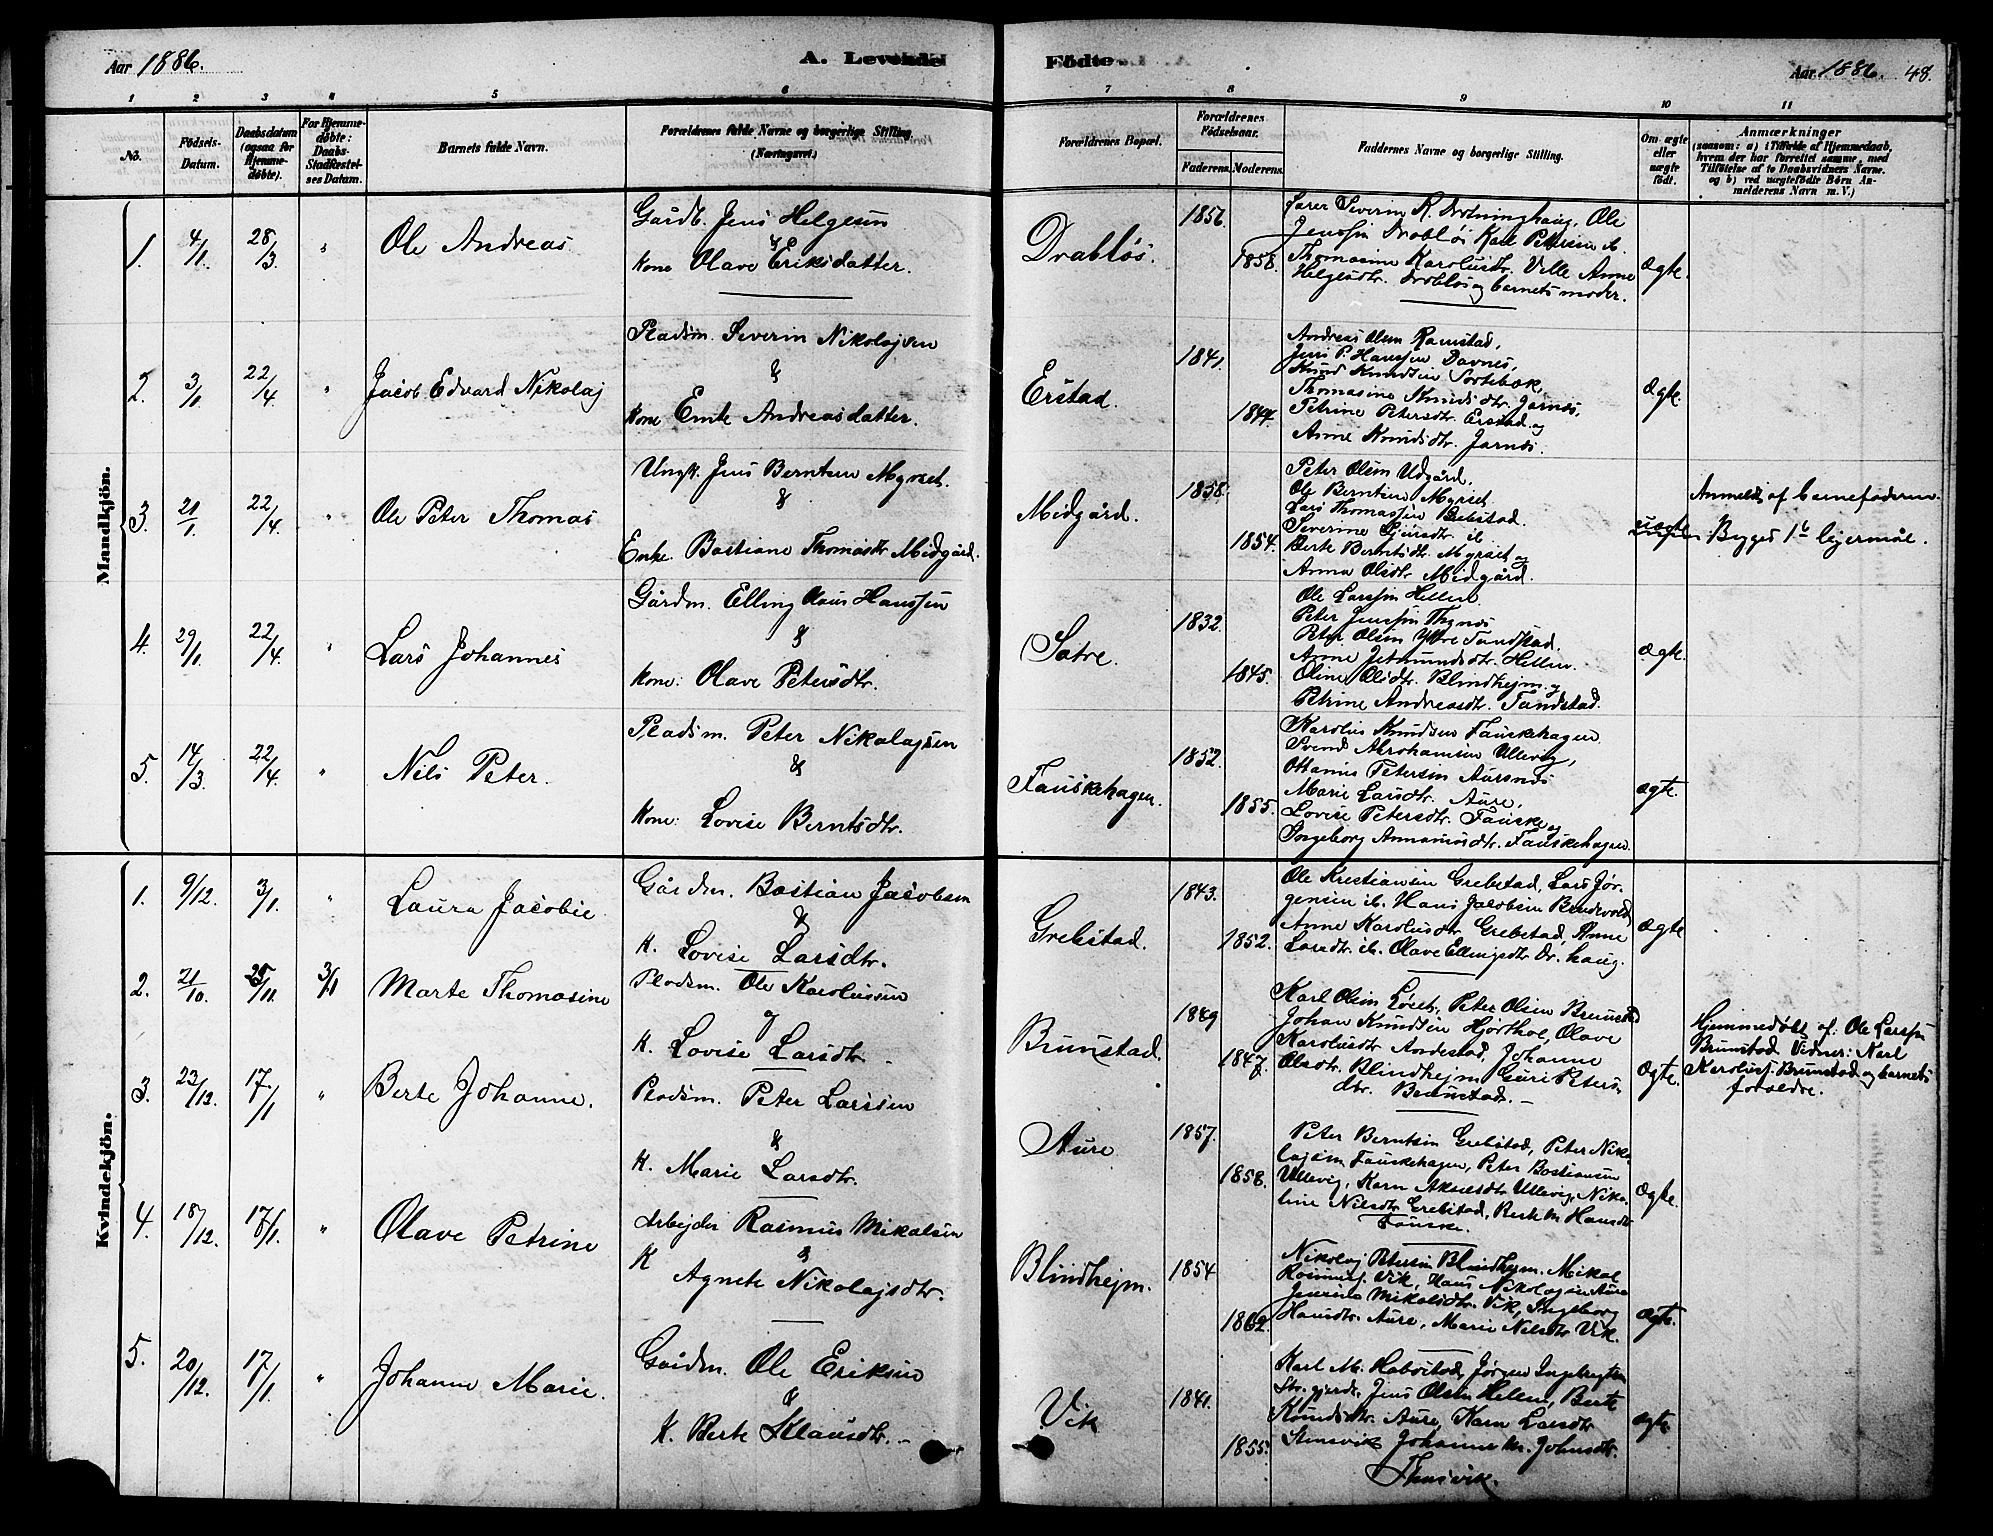 Aar 1886.
A. Levende
Fødte.
Aar 1886. 48.
1 2 3 4 5 6 7 8 9 10 11
No.
Fødsels-
Datum.
Daabsdatum
(ogsaa for
Hjemme-
døbte).
For Hjemme-
døbte:
Daabs-
Stadfæstel-
ses Datum.
Barnets fulde Navn.
Forældrenes fulde Navne og borgerlige Stilling.
(Næringsvei.)
Forældrenes Bopæl.
Forældrenes
Fødselsaar.
Faderens. Moderens.
Faddernes Navne og borgerlige Stilling.
Om ægte
eller
uægte
født.
Anmærkninger
(saasom: a) i Tilfælde af Hjemmedaab,
hvem der har forrettet samme, med
Tilføielse af to Daabsvidners Navne.
og b) ved uægtefødte Børn An-
melderens Navn m. V.)
Mandkjön.
1. 4/1 28/3 " Ole Andreas
Gårdb. Jens Helgesen
&
Kone Olave Eriksdatter.
Drabløs.
1856
1858.
Severin K. Drotninghaug, Ole
Jenssen Drabløs Karl Petersen ib.
Thomasine Karolusdtr. Velle Anne
Helgesdtr. Drabløs og barnets moder.
ægte.
2. 3/1 22/4 " Jacob Edvard Nikolaj
Pladsm. Severin Nikolajsen
&
Kone Emte Andreasdatter.
Erstad.
1841.
1844.
Andreas Olsen Ramstad,
Jens P. Hanssen Davnes,
Knud Knudsen Sortebæk,
Thomasine Knudsdtr. Jarnes,
Petrine Petersdtr. Erstad og
Anne Knudsdtr. Jarnes.
ægte.
3. 21/1 22/4 " Ole Peter Thomas
Ungk. Jens Berntsen Myrset.
&
Enke Bastiane Thomasdtr Midgård.
Midgård.
1858.
1854.
Peter Olsen Udgård.
Ole Berntsen Myrset.
Lars Thomassen Grebstad.
Severine Sjursdtr. ib.
Berte Berntsdtr. Myrset og
Anna Olsdtr. Midgård.
uægte
Anmeldt af barnefaderen.
Begges 1ste lejermål.
4. 29/1 22/4 " Lars Johannes
Gårdm. Elling Claus Hanssen
&
Kone: Olave Petersdtr.
Satre.
1832.
1845.
Ole Larssen Hellen.
Peter Jenssen Thynes
Peter Olsen Yttre Tandstad.
Anne Jetmundsdtr. Hellen.
Oline Olsdtr. Blindhejm og
Petrine Andreasdtr. Tandstad.
ægte.
5. 14/3 22/4 " Nils Peter.
Pladsm. Peter Nikolajsen
&
Kone: Lovise Berntsdtr.
Fauskehagen.
1852.
1855.
Karolus Knudsen Fauskehagen.
Svend Abrahamsen Ullevig,
Ottanius Petersen Aursnes
Marie Larsdtr. Aure,
Lovise Petersdtr. Fauske og
Ingeborg Annaniasdtr. Fauskehagen.
ægte.
Kvindekjön.
1. 9/12. 3/1. " Laura Jacobie
Gårdm. Bastian Jacobsen
&
K. Lovise Larsdtr.
Grebstad.
1843.
1852.
Ole Kristiansen Grebstad, Lars Jør-
gensen ib. Hans Jacobsen Brudevold,
Anne Karolusdtr Grebstad, Anne
Larsdtr. ib. Olave Ellingsdtr Dr.haug.
ægte
2. 21/10. 25/11. 3/1 Marte Thomasine
Pladsm. Ole Karolussen
og
K. Lovise Larsdtr.
Brunstad.
1849
1847.
Karl Olsen Løset, Peter Olsen Brunstad
Johan Knudsen Hjorthol, Olave
Karolusdtr Andestad, Johanne
Olsdtr. Blindhejm Guri Peters-
dtr. Brunstad.
ægte.
Hjemmedøbt af: Ole Larssen
Brunstad Vidner: Karl
Karolusf. Brunstad og barnets
forældre.
3. 23/12. 17/1 " Berte Johanne.
Pladsm. Peter Larssen
&
K. Marie Larsdtr.
Aure
1857.
1858.
Peter Berntsen Grebstad, Peter Niko-
lajsen Fauskehagen, Peter Bastiansen
Ullevig, Karn Akselsdtr Ullevig, Niko-
line Nilsdtr Grebstad, Berte M. Hansdtr
Fauske.
ægte.
4. 18/12. 17/1. " Olave Petrine
Arbejder Rasmus Mikalsen
&
K Agnete Nikolajsdtr.
Blindhejm.
1854
1862.
Nikolaj Petersen Blindhejm. Mikal
Rasmusf. Vik, Hans Nikolajsen Aure
Mikalsdtr. Vik, Ingeborg
Hansdtr. Aure, Marie Nilsdtr Vik.
ægte.
5. 20/12. 17/1. " Johanne Marie.
Gårdm. Ole Eriksen
&
K. Berte Klausdtr.
Vik
1841.
1855.
Karl M. Habostad, Jørgen Ingebrigtsen
Jens Olsen Hellen, Berte
Knudsdtr. Aure, Karn Larsdtr
Stensvik Johanne M. Johnsdtr.
ægte